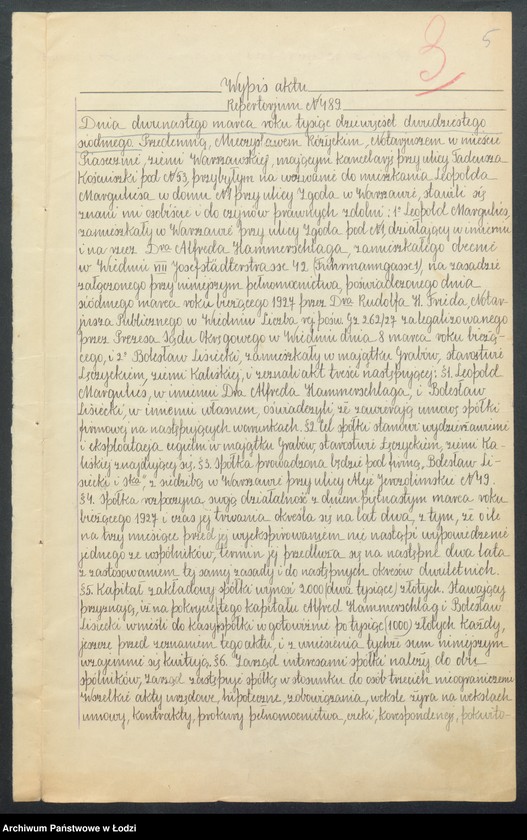 3
5
Wypis aktu
Repertorjum № 489
Dnia dwunastego marca roku tysiąc dziewięćset dwudziestego
siódmego Przedemną, Mieczysławem Różyckim, Notarjuszem w mieście
Piasecznie, ziemi Warszawskiej, mającym kancelarję przy ulicy Tadeusza
Kościuszki pod № 53, przybyłym na wezwanie do mieszkania Leopolda
Marguliesa w domu № 1 przy ulicy Zgoda w Warszawie, stawili się
znani mi osobiście i do czynów prawnych zdolni: 1° Leopold Margulies,
zamieszkały w Warszawie przy ulicy Zgoda pod № 1, działający w imieniu
i na rzecz Dra Alfreda Hammerschlaga, zamieszkałego obecnie
w Wiedniu VIII Josefstädterstrasse 42 (Fuhrmanngasse 1), na zasadzie
załączonego przy niniejszym pełnomocnictwa, poświadczonego dnia
siódmego marca roku bieżącego 1927 przez Dra Rudolfa H. Frieda, Notar-
jusza Publicznego w Wiedniu Liczba rej. pośw. Gz 262/27 zalegalizowanego
przez Prezesa Sądu Okręgowego w Wiedniu dnia 8 marca roku bieżą-
cego, i 2° Bolesław Lisiecki, zamieszkały w majątku Grabów, starostwie
Łęczyckiem, ziemi Kaliskiej, i zeznali akt treści następującej: §1. Leopold
Margulies, w imieniu Dra Alfreda Hammerschlaga, i Bolesław
Lisiecki, w imieniu własnem, oświadczyli, że zawierają umowę spółki
firmowej na następujących warunkach. §2 Cel spółki stanowi wydzierżawienie
i eksploatacja cegielni w majątku Grabów, starostwie Łęczyckiem, ziemi Ka-
liskiej znajdującej się. §3. Spółka prowadzona będzie pod firmą, Bolesław Li-
siecki i Ska", z siedzibą w Warszawie przy ulicy Aleje Jerozolimskie № 49.
§4. Spółka rozpoczyna swoją działalność z dniem piętnastym marca roku
bieżącego 1927 i czas jej trwania określa się na lat dwa, z tym, że o ile
na trzy miesiące przed jej wyekspirowaniem nie nastąpi wypowiedzenie
jednego ze wspólników, termin jej przedłuża się na następne dwa lata
z zastosowaniem tej samej zasady i do następnych okresów dwuletnich.
§5. Kapitał zakładowy spółki wynosi 2000 (dwa tysiące) złotych. Stawający
przyznają, iż na pokrycie tego kapitału Alfred Hammerschlag i Bolesław
Lisiecki wnieśli do kasy spółki w gotowiźnie po tysiąc (1000) złotych każdy,
jeszcze przed zeznaniem tego aktu, i z wniesienia tychże sum niniejszym
wzajemnie się kwitują. §6. Zarząd interesami spółki należy do obu
spólników, zarząd zastępuje spółkę w stosunku do osób trzecich nieograniczenie
Wszelkie akty urzędowe, hipoteczne, zobowiązania, weksle żyra na wekslach
umowy, kontrakty, prokury pełnomocnictwa, czeki, korespondencję, pokwito-
Archiwum Państwowe w Łodzi